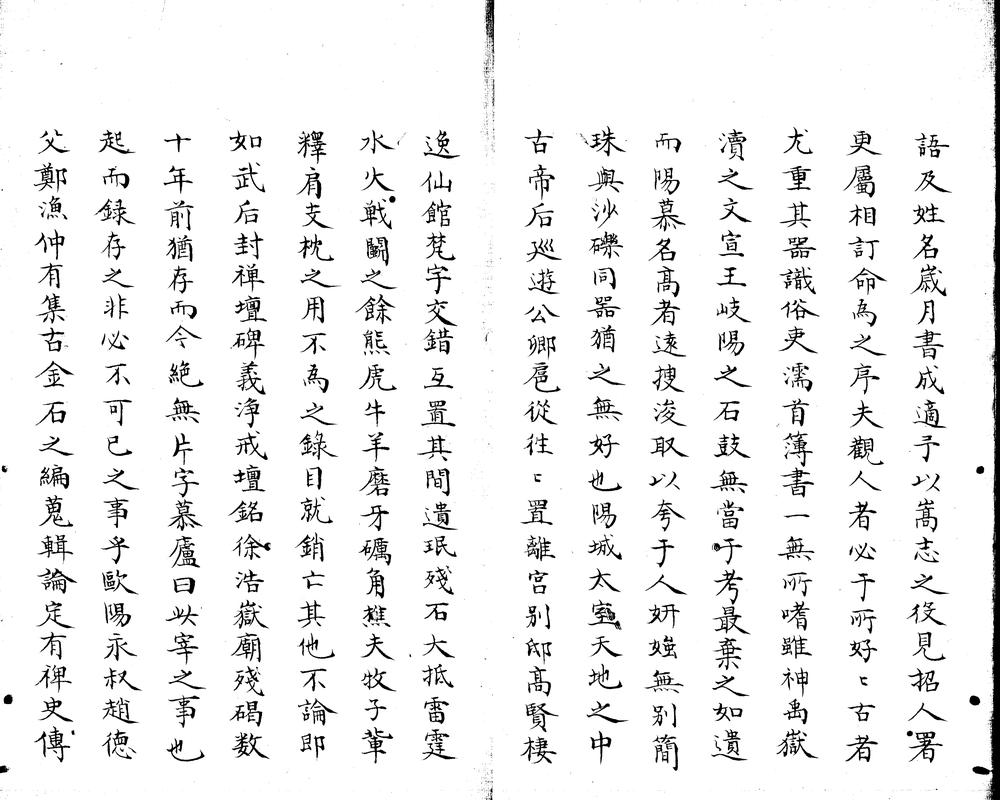 語及姓名歲月書成適予以嵩志之役見招人署
更屬相訂命為之序夫觀人者必于所好〻古者
尤重其器識俗吏濡首簿書一無所嗜雖神禹嶽
瀆之文宣王岐陽之石鼓無當于考最棄之如遺
而陽慕名高者遠搜浚取以夸于人妍媸無別簡
珠與沙礫同器猶之無好也陽城太室天地之中
古帝后巡遊公卿扈從徃〻置離宮別邸高賢棲
逸仙館梵宇交錯互置其間遺珉殘石大抵雷霆
水火戰鬭之餘熊虎牛羊磨牙礪角樵夫牧子葦
釋肩支枕之用不為之錄目就銷亡其他不論即
如武后封禅壇碑義浄戒壇銘徐浩嶽廟殘碣数
十年前猶存而今絕無片字慕廬曰此宰之事也
起而録存之非必不可已之事乎歐陽永叔趙德
父鄭漁仲有集古金石之編蒐輯論定有裨史傳